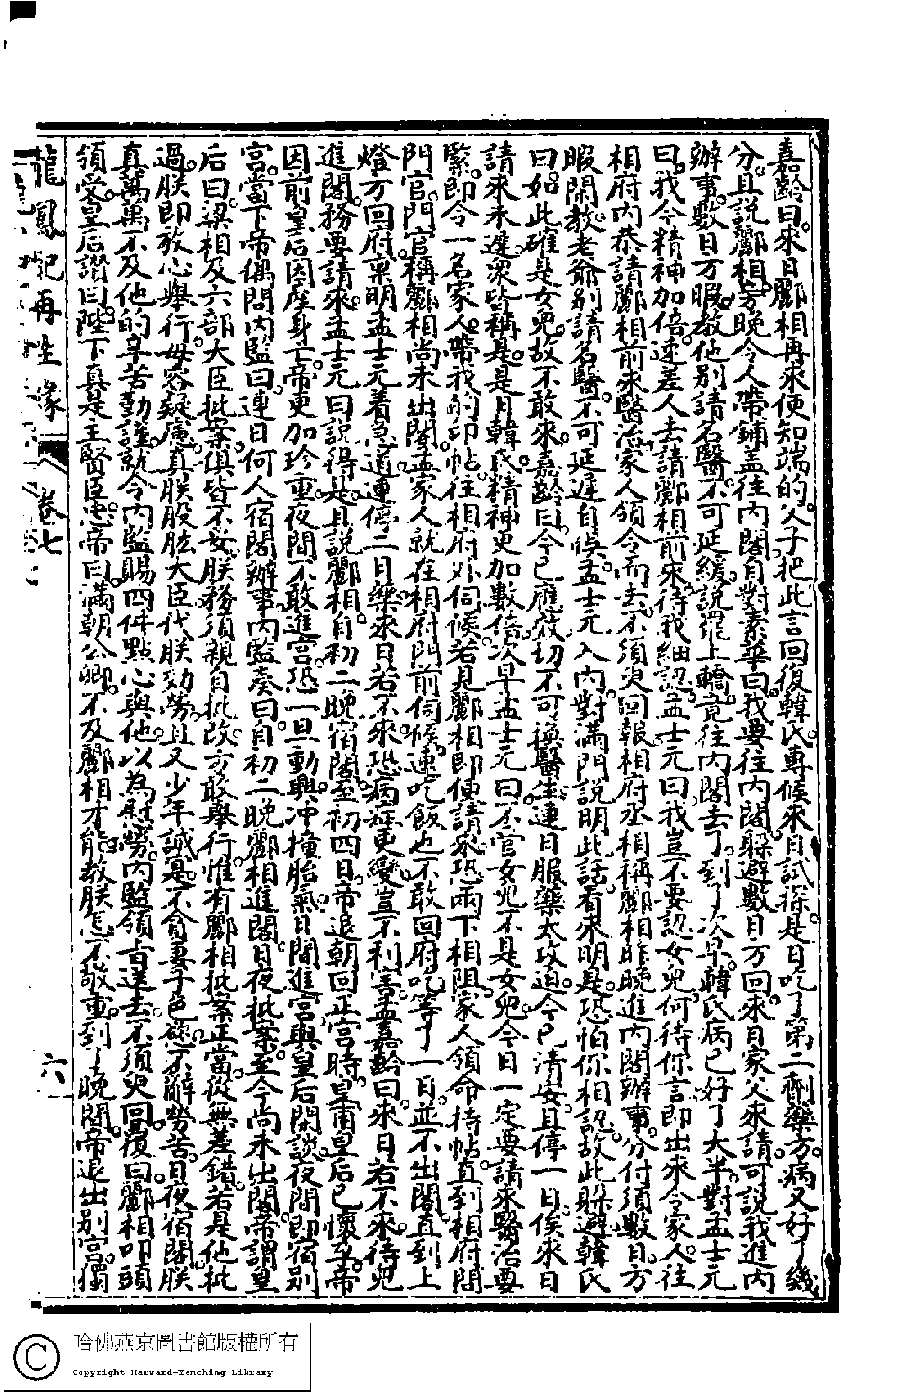 嘉齡曰。來日酈相再來便知端的。父子把此言回復韓氏。專候來日試探。是日吃了第二劑藥方。病又好了幾
分。且說酈相方晚令人帶鋪盖往內閣。自對素華曰。我要往內閣躲避數日方回。來日家父來請。可說我進內
辦事。數日方暇。教他別請名醫。不可延緩。說罷上轎。竟往內閣去了。到了次早。韓氏病已好了大半。對孟士元
曰。我今精神加倍。速差人去請酈相前來。待我細認。孟士元曰。我豈不要認女兒。何待你言。即出來令家人。往
相府內恭請酈相前來醫治。家人領令而去。不須臾回報相府丞相稱酈相昨晚進內閣辦事。分付須數日。方
暇閑。教老爺別請名醫。不可延遲自悞。孟士元入內。對滿門說明此話。看來明是恐怕你相認。故此躲避。韓氏
曰。如此確是女兒。故不敢來。嘉齡曰。今已應效。切不可換醫生。連日服藥太攻迫。今已清安。且停一日。俟來日
請來未遲。衆皆稱是。是日韓氏精神更加數倍。次早孟士元曰。不管女兒不是女兒。今日一定要請來醫治要
緊。即令一名家人。帶我的印帖。往相府外伺候。若見酈相即便請來。恐兩下相阻。家人領命持帖。直到相府問
門官。門官稱酈相尚未出閣。孟家人就在相府門前伺候。連吃飯也不敢回府吃。等了一日。並不出閣。直到上
燈方回府稟明。孟士元着急道。連停二日藥。來日若不來。恐病症更變。豈不利害。孟嘉齡曰。來日若不來。待兒
進閣。務要請來。孟士元曰。說得是。且說酈相自初二晚宿閣。至初四日。帝退朝回正宮時。皇甫皇后已懷孕。帝
因前皇后因產身亡。帝更加珍重。夜間不敢進宮。恐一旦動興。冲撞胎氣。日間進宮與皇后閑談。夜間即宿別
宮。當下帝偶問內監曰。連日何人宿閣辦事。內監奏曰。自初二晚酈相進閣。日夜批案。至今尚未出閣。帝謂皇
后曰。梁相及六部大臣批案。俱皆不妥。朕務須親自批改。方敢舉行。惟有酈相批案正當。從無差錯。若是他批
過。朕即放心舉行。毋容疑慮。真朕股肱大臣。代朕劝勞。且又少年誠寔。不貪妻子色慾。不辭勞苦。日夜宿閣。朕
真萬萬不及他的辛苦勤謹。就令內監賜四件點心與他。以為慰勞。內監領旨送去。不須臾回覆曰。酈相叩頭
領受。皇后謂曰。陛下真是主賢臣忠。帝曰。滿朝公卿。不及酈相才能。教朕怎不敬重。到了晚間。帝退出別宮。獨
龍鳳配再生緣
卷七
六
哈佛燕京圖書館版權所有
Copyright Harvard-Yenching Library